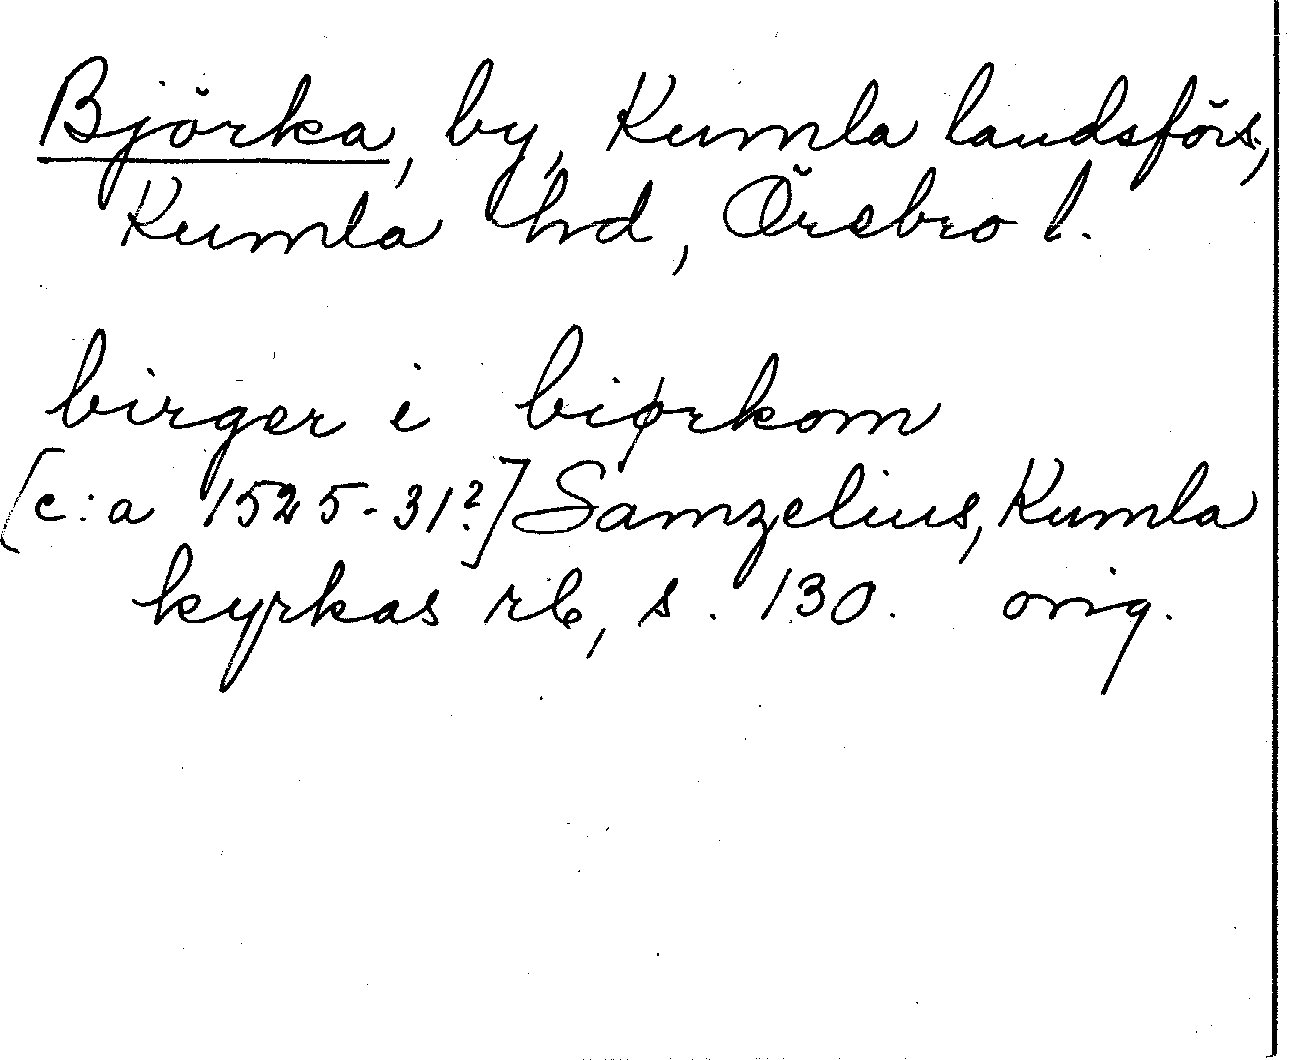 Björka, by, Kumla landsförs,
Kumla hd, Örebro l.
birger i biørkom
[c:a 1525-31?] Samzelius, Kumla
kyrkas rb, s. 130. orig.